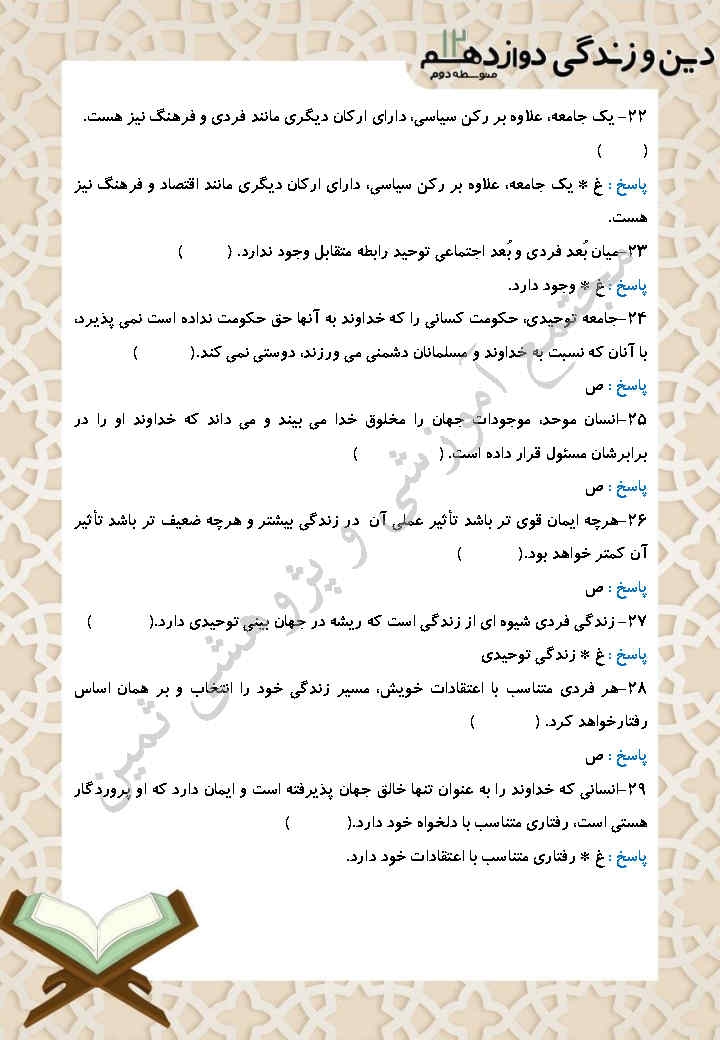 دین و زندگی دوازدهم ۱۲
متوسطه دوم
۲۲- یک جامعه، علاوه بر رکن سیاسی، دارای ارکان دیگری مانند فردی و فرهنگ نیز هست.
( )
پاسخ : غ * یک جامعه، علاوه بر رکن سیاسی، دارای ارکان دیگری مانند اقتصاد و فرهنگ نیز
هست.
۲۳-میان بُعد فردی و بُعد اجتماعی توحید رابطه متقابل وجود ندارد. ( )
پاسخ : غ * وجود دارد.
۲۴-جامعه توحیدی، حکومت کسانی را که خداوند به آنها حق حکومت نداده است نمی پذیرد،
با آنان که نسبت به خداوند و مسلمانان دشمنی می ورزند، دوستی نمی کند.( )
پاسخ : ص
۲۵-انسان موحد، موجودات جهان را مخلوق خدا می بیند و می داند که خداوند او را در
برابرشان مسئول قرار داده است. ( )
پاسخ : ص
۲۶-هرچه ایمان قوی تر باشد تأثیر عملی آن در زندگی بیشتر و هرچه ضعیف تر باشد تأثیر
آن کمتر خواهد بود.( )
پاسخ : ص
۲۷- زندگی فردی شیوه ای از زندگی است که ریشه در جهان بینی توحیدی دارد.( )
پاسخ : غ * زندگی توحیدی
۲۸-هر فردی متناسب با اعتقادات خویش، مسیر زندگی خود را انتخاب و بر همان اساس
رفتارخواهد کرد. ( )
پاسخ : ص
۲۹-انسانی که خداوند را به عنوان تنها خالق جهان پذیرفته است و ایمان دارد که او پروردگار
هستی است، رفتاری متناسب با دلخواه خود دارد.( )
پاسخ : غ * رفتاری متناسب با اعتقادات خود دارد.
مجتمع آموزشی و پژوهشی ثمین